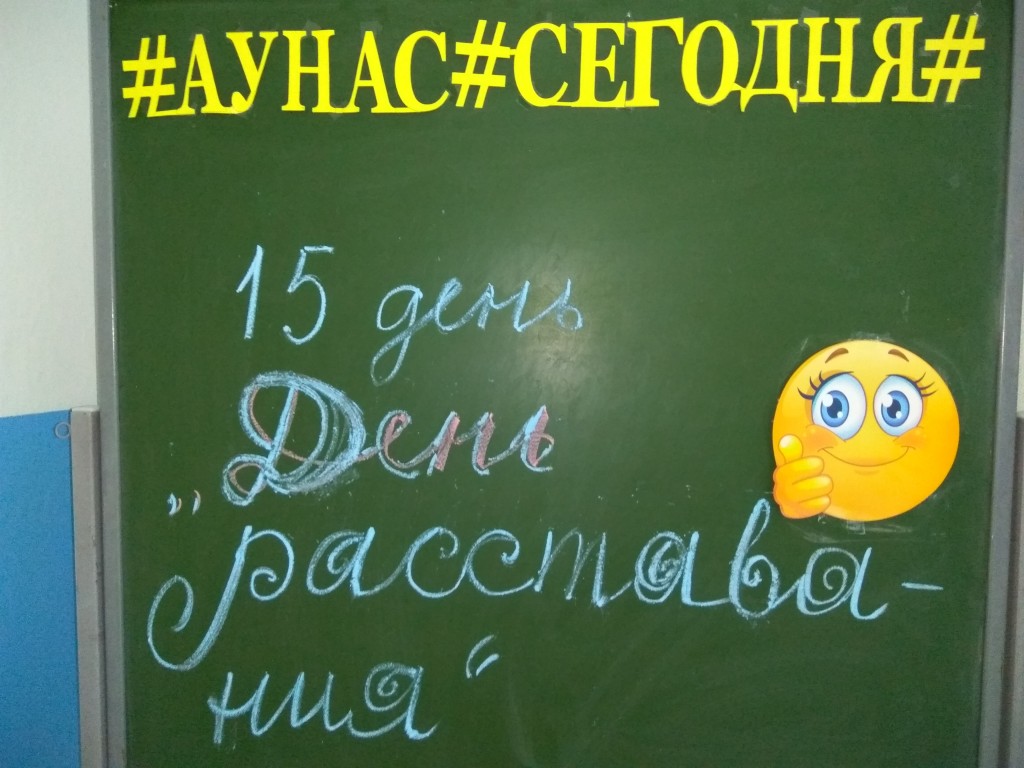 #АУНАС#СЕГОДНЯ#
15 день
„День
расстава-
ния“